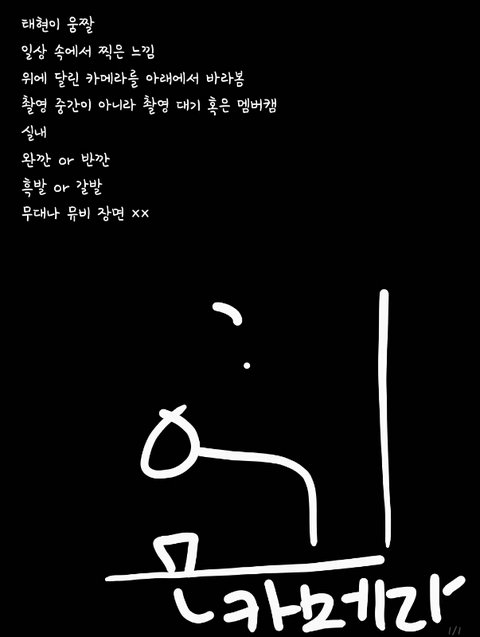 태현이 움짤
일상 속에서 찍은 느낌
위에 달린 카메라를 아래에서 바라봄
촬영 중간이 아니라 촬영 대기 혹은 멤버캠
실내
완깐 or 반깐
흑발 or 갈발
무대나 뮤비 장면 xx
카메라
1/1